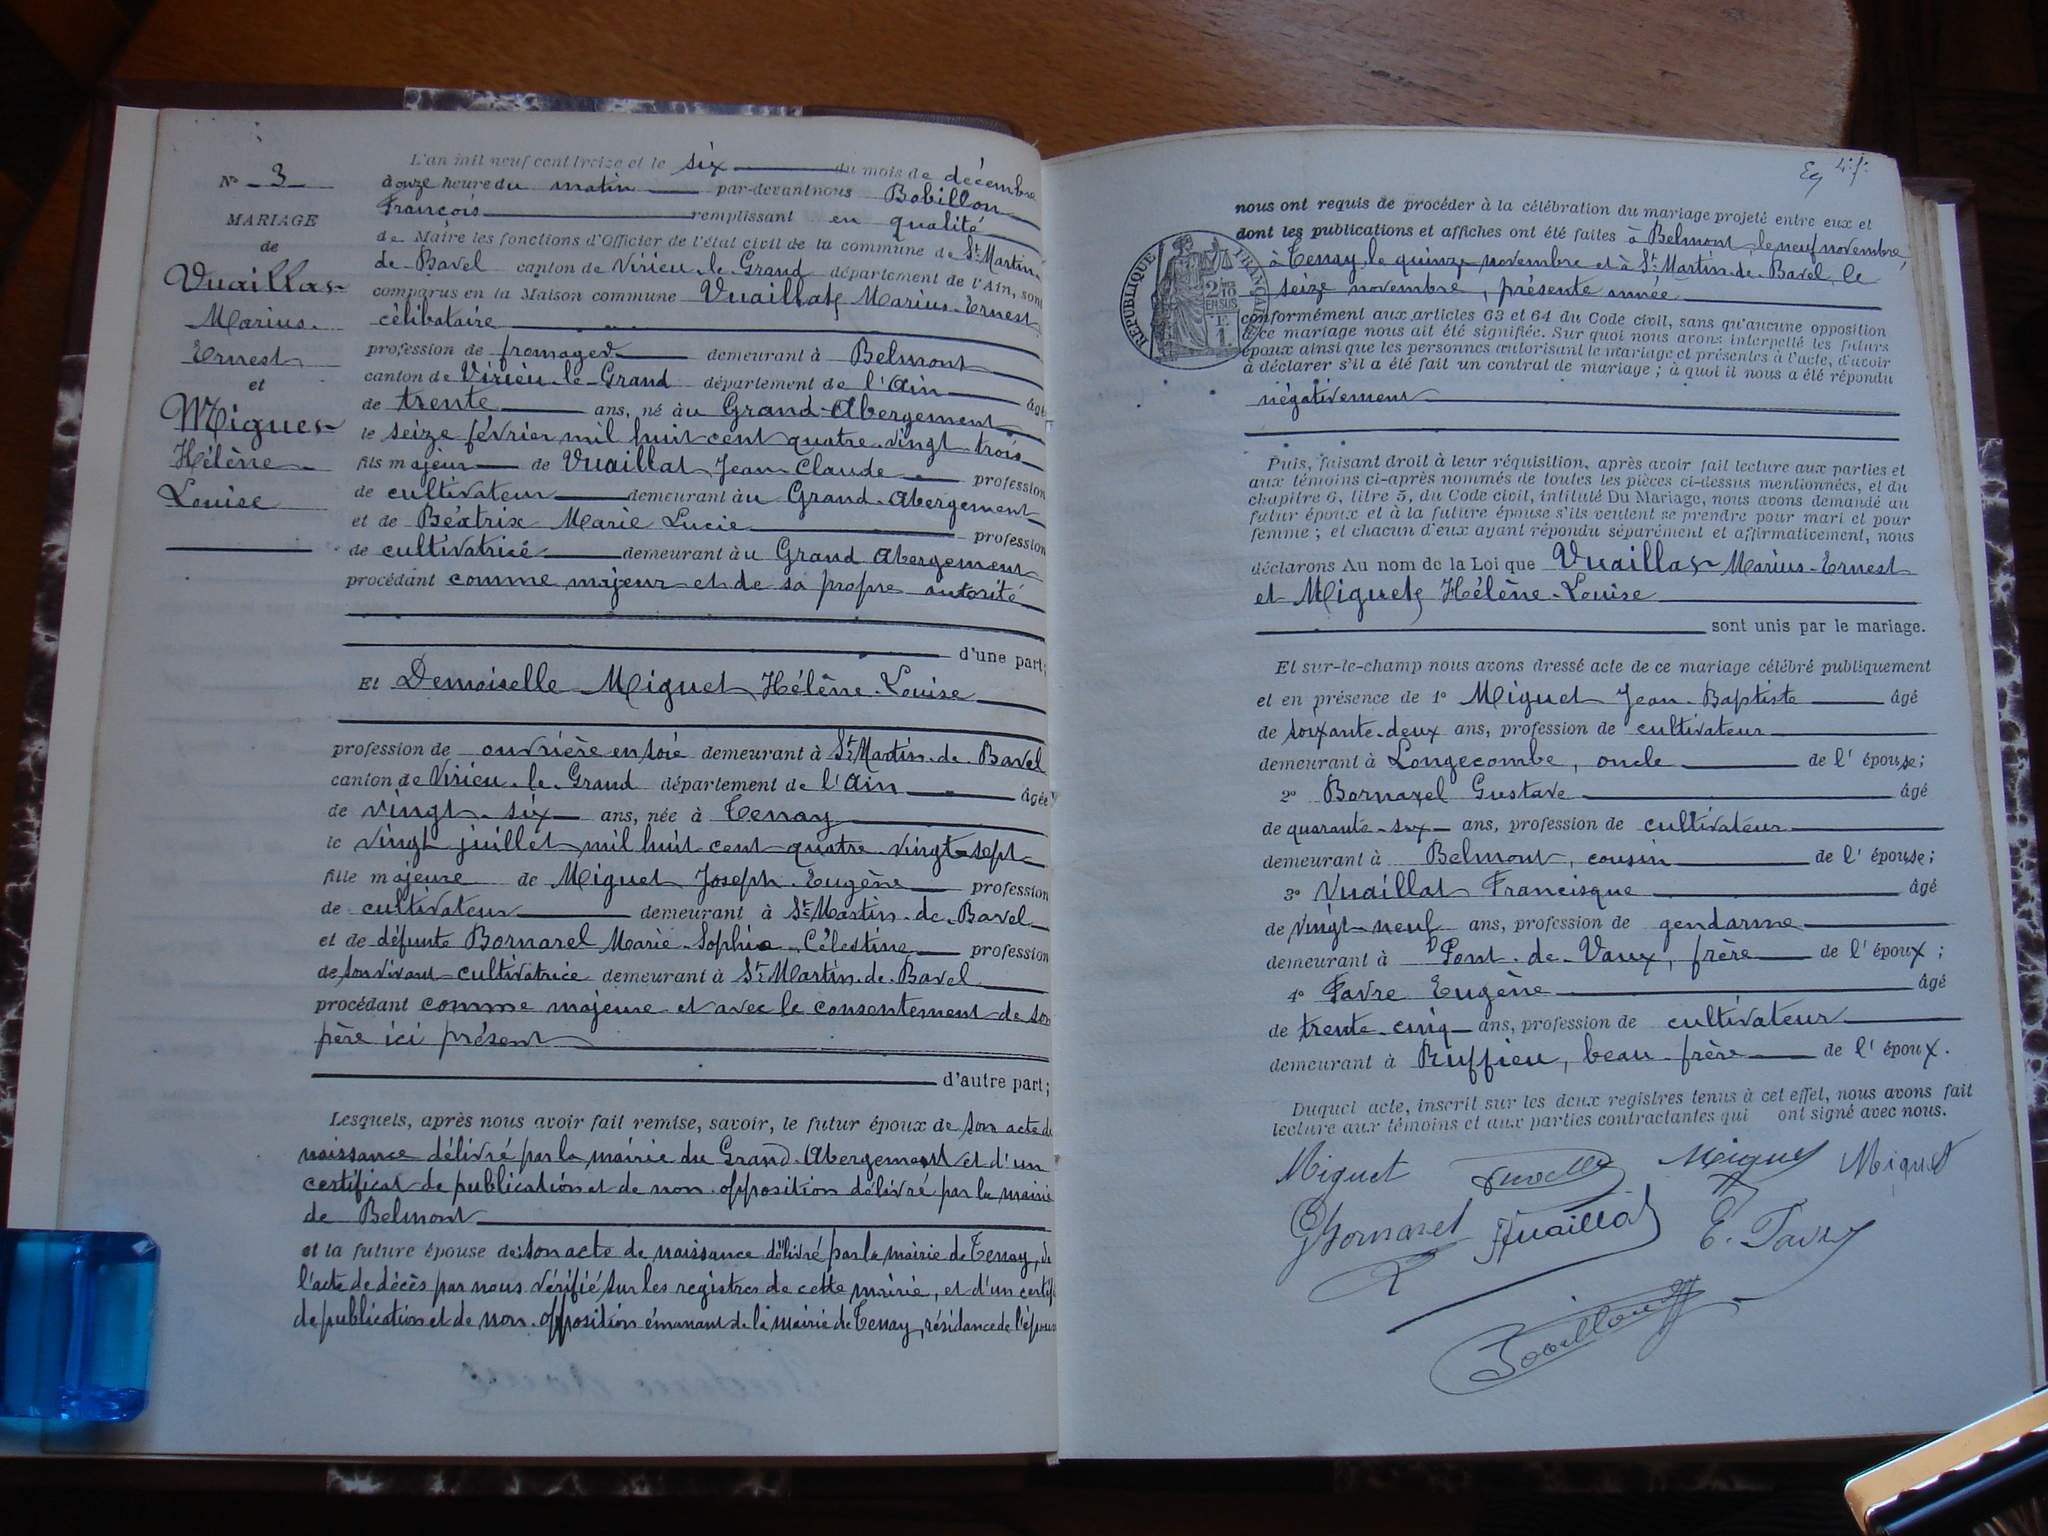 N° 3
MARIAGE
de
Vuaillat
Marius
Ernest
et
Miguet
Hélène
Louise
L'an mil neuf cent treize et le six du mois de décembre
à onze heure du matin par-devant nous Bobillon
François remplissant en qualité
de Maire les fonctions d'Officier de l'état civil de la commune de St Martin
de Bavel canton de Virieu-le-Grand département de l'Ain, sont
comparus en la Maison commune Vuaillat Marius-Ernest
célibataire
profession de fromager demeurant à Belmont
canton de Virieu-le-Grand département de l'Ain âgé
de trente ans, né au Grand-Abergement
le seize février mil huit cent quatre-vingt trois
fils majeur de Vuaillat Jean Claude profession
de cultivateur demeurant au Grand-Abergement
et de Béatrix Marie Lucie profession
de cultivatrice demeurant au Grand Abergement
procédant comme majeur et de sa propre autorité
d'une part;
Et Demoiselle Miguet Hélène-Louise
profession de ouvrière en soie demeurant à St Martin-de-Bavel
canton de Virieu-le-Grand département de l'Ain âgée
de vingt-six ans, née à Tenay
le vingt juillet mil huit cent quatre-vingt-sept
fille majeure de Miguet Joseph-Eugène profession
de cultivateur demeurant à St Martin-de-Bavel
et de défunte Bornarel Marie-Sophie-Célestine profession
de son vivant cultivatrice demeurant à St Martin-de-Bavel
procédant comme majeure et avec le consentement de son
père ici présent
d'autre part;
Lesquels, après nous avoir fait remise, savoir, le futur époux de son acte de
naissance délivré par la mairie du Grand-Abergement et d'un
certificat de publication et de non-opposition délivré par la mairie
de Belmont
et la future épouse de son acte de naissance délivré par la mairie de Tenay, de
l'acte de décès par nous vérifié sur les registres de cette mairie, et d'un certif
de publication et de non-opposition émanant de la mairie de Tenay, résidance de l'épouse
nous ont requis de procéder à la célébration du mariage projeté entre eux et
dont les publications et affiches ont été faites à Belmont le neuf novembre,
à Tenay le quinze novembre et à St Martin-de-Bavel le
seize novembre, présente année
RÉPUBLIQUE FRANÇAISE
2/10
EN SUS
conformément aux articles 63 et 64 du Code civil, sans qu'aucune opposition
à ce mariage nous ait été signifiée. Sur quoi nous avons interpellé les futurs
époux ainsi que les personnes autorisant le mariage et présentes à l'acte, d'avoir
à déclarer s'il a été fait un contrat de mariage; à quoi il nous a été répondu
négativement
Puis, faisant droit à leur réquisition, après avoir fait lecture aux parties et
aux témoins ci-après nommés de toutes les pièces ci-dessus mentionnées, et du
chapitre 6, titre 5, du Code civil, intitulé Du Mariage, nous avons demandé au
futur époux et à la future épouse s'ils veulent se prendre pour mari et pour
femme; et chacun d'eux ayant répondu séparément et affirmativement, nous
déclarons Au nom de la Loi que Vuaillat Marius-Ernest
et Miguet Hélène-Louise
sont unis par le mariage.
Et sur-le-champ nous avons dressé acte de ce mariage célébré publiquement
et en présence de 1° Miguet Jean-Baptiste âgé
de soixante-deux ans, profession de cultivateur
demeurant à Longecombe, oncle de l'épouse;
2° Bornarel Gustave âgé
de quarante-six ans, profession de cultivateur
demeurant à Belmont, cousin de l'épouse;
3° Vuaillat Francisque âgé
de vingt-neuf ans, profession de gendarme
demeurant à Pont-de-Vaux, frère de l'époux;
4° Favre Eugène âgé
de trente-cinq ans, profession de cultivateur
demeurant à Ruffieu, beau-frère de l'époux.
Duquel acte, inscrit sur les deux registres tenus à cet effet, nous avons fait
lecture aux témoins et aux parties contractantes qui ont signé avec nous.
Miguet Miguet Miguet
GBornarel FVuaillat E. Favre
Bobillon